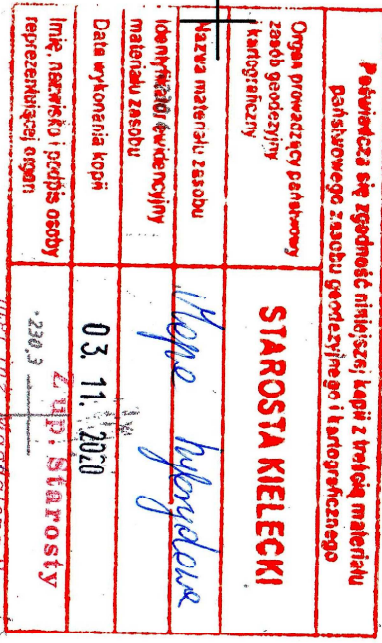 Poświadcza się zgodność niniejszej kopii z treścią materiału
państwowego zasobu geodezyjnego i kartograficznego
Organ prowadzący państwowy
zasób geodezyjny
i kartograficzny
STAROSTA KIELECKI
Nazwa materiału zasobu
Mapa hybrydowa
Identyfikator ewidencyjny
materiału zasobu
Data wykonania kopii
03. 11. 2020
Imię, nazwisko i podpis osoby
reprezentującej organ
Z up. Starosty
230,3